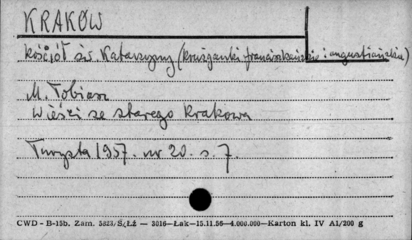 KRAKÓW
kościół św. Katarzyny (krużganki franciszkańskie i augustiańskie)
M. Tobiasz
Wieści ze starego Krakowa
Turysta 1957. nr 20. s. 7.
CWD - B-15b. Zam. 5823/S.Łż — 3016—Łak—15.11.56—4.000.000—Karton kl. IV A1/200 g